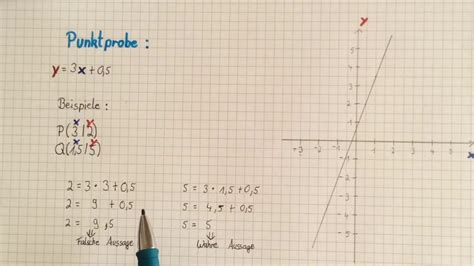 Punktprobe :
y = 3x + 0,5
Beispiele :
P(3|2)
Q(1,5|5)
2 = 3 · 3 + 0,5
2 = 9 + 0,5
2 = 9,5
⇓
Falsche Aussage
5 = 3 · 1,5 + 0,5
5 = 4,5 + 0,5
5 = 5
⇓
Wahre Aussage
y
x
5
4
3
2
1
-3 -2 -1 1 2 3 4 5
-1
-2
-3
-4
-5